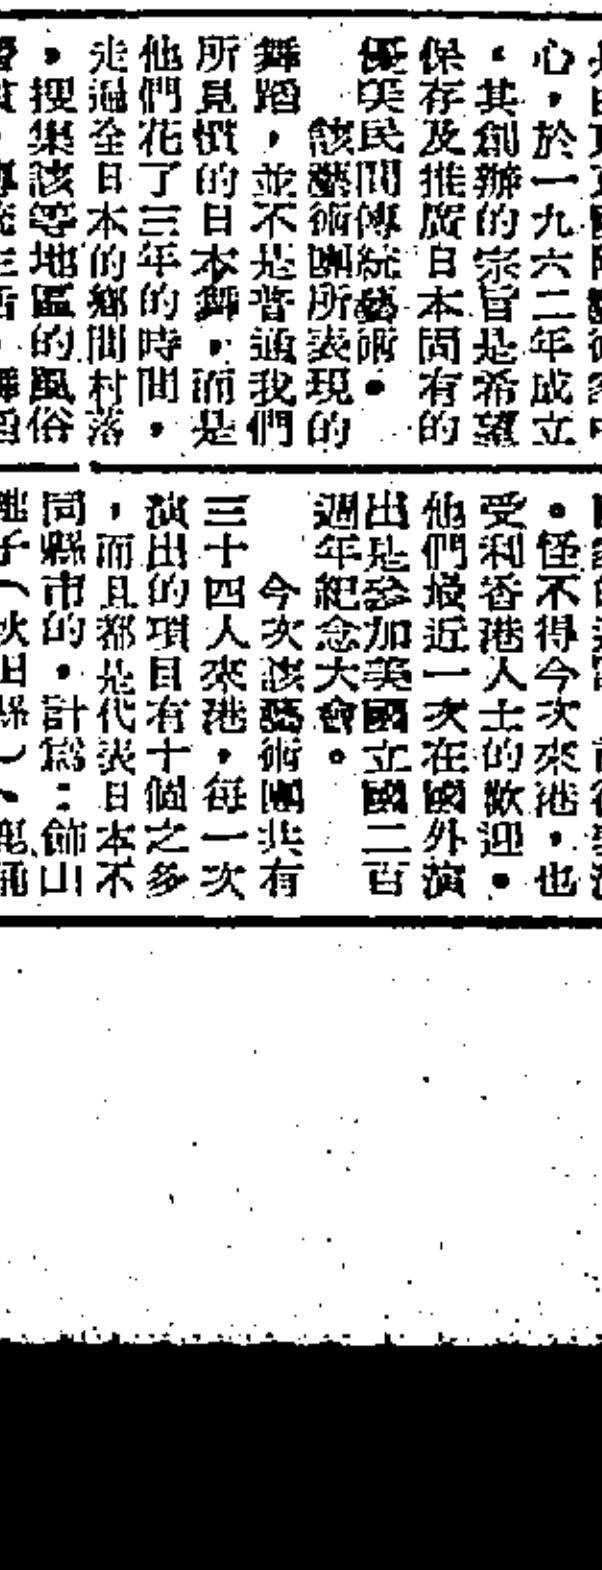 心，於一九六二年成立
，其創辦的宗旨是希望
保存及推廣日本固有的
優美民間傳統藝術。
該藝術團所表現的
舞蹈，並不是普通我們
所見慣的日本舞，而是
他們花了三年的時間，
走過全日本的鄉間村落
，搜集該等地區的風俗
。怪不得今次來港，也
受利香港人士的歡迎。
他們最近一次在國外演
出是參加美國立國二百
週年紀念大會。
今次該藝術團共有
三十四人來港，每一次
演出的項目有十個之多
，而且都是代表日本不
同縣市的，計爲：飾山